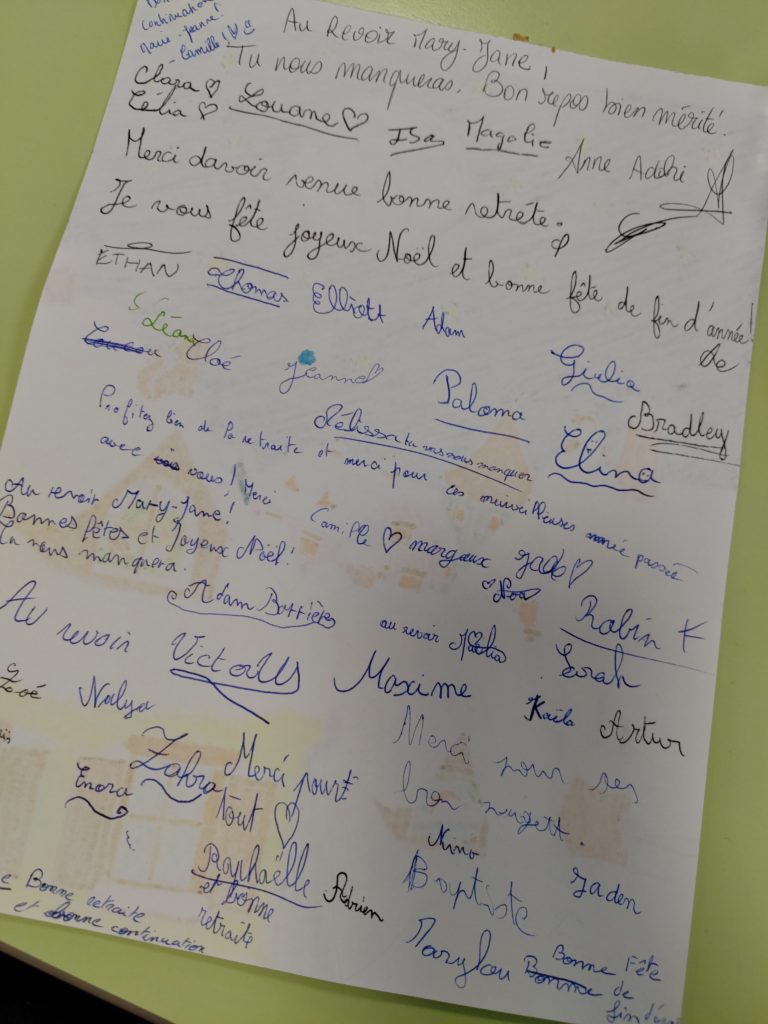 continuation
Marie-Jeanne!
- Camille!
Au Revoir Mary-Jane,
Tu nous manqueras. Bon repos bien mérité.
Clara ♡
Célia ♡ Louane ♡ Isa Magalie Anne
Merci davoir venue bonne retrête.
Je vous fête joyeux Noël et bonne fête de fin d'année!
ETHAN Thomas Elliott Adam Giulia
Léan
Cloé Jeanne Paloma Bradley
Mélissa tu vas nous manquer Elina
Profitez bien de la retraite et merci pour ces merveilleuses année passée
avec vous! Merci
Camille ♡ margaux Jade ♡
Au revoir Mary-Jane!
Bonnes fêtes et Joyeux Noël!
Tu nous manquera.
Noa
Adam au revoir Robin K
Au revoir Victor Maxime Sarah
Zoé Nalya Kaïla Artur
Zahra Merci pour
tout ♡
Merci pour ses
bon nugett.
Enora
Nino
Raphaëlle Adrien Baptiste Jaden
et bonne
retraite
Bonne retraite
et bonne continuation
Marylou Bonne Fête
de
fin